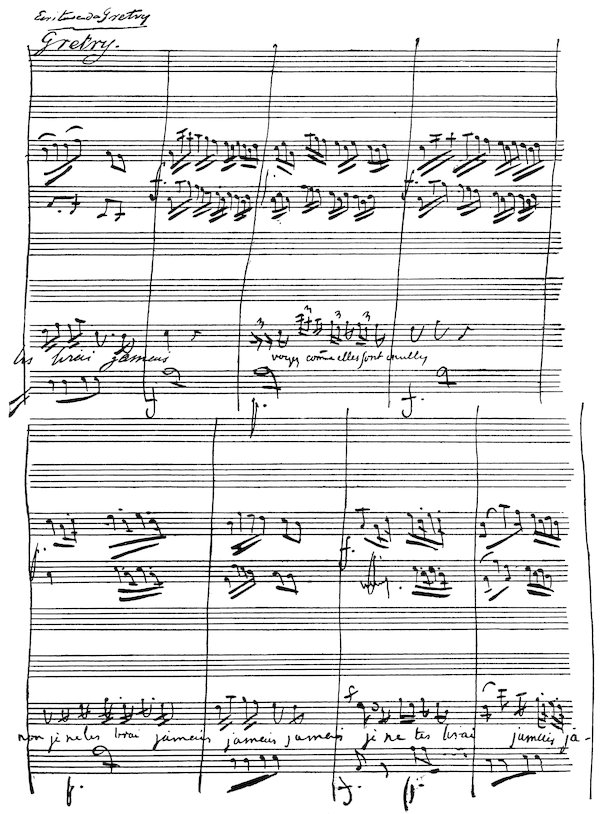 Ecriture de Gretry
Gretry.
f. f.
les lirai jamais voyez comme elles sont cruelles
p. f.
f. f.
non je ne les lirai jamais jamais jamais je ne les lirai jamais ja-
p. f. p.